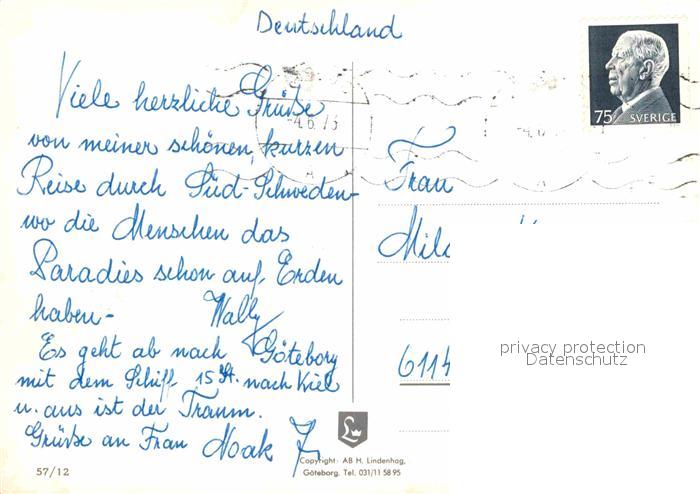 Deutschland
Viele herzliche Grüße
von meiner schönen, kurzen
Reise durch Süd-Schweden-
wo die Menschen das
Paradies schon auf Erden
haben-
Wally
Es geht ab nach Göteborg
mit dem Schiff 15 St. nach Kiel
u. aus ist der Traum.
Grüße an Frau Noak
57/12
75 SVERIGE
-4.6.73
Frau
6114
privacy protection
Datenschutz
Copyright: AB H. Lindenhag,
Göteborg. Tel. 031/11 58 95